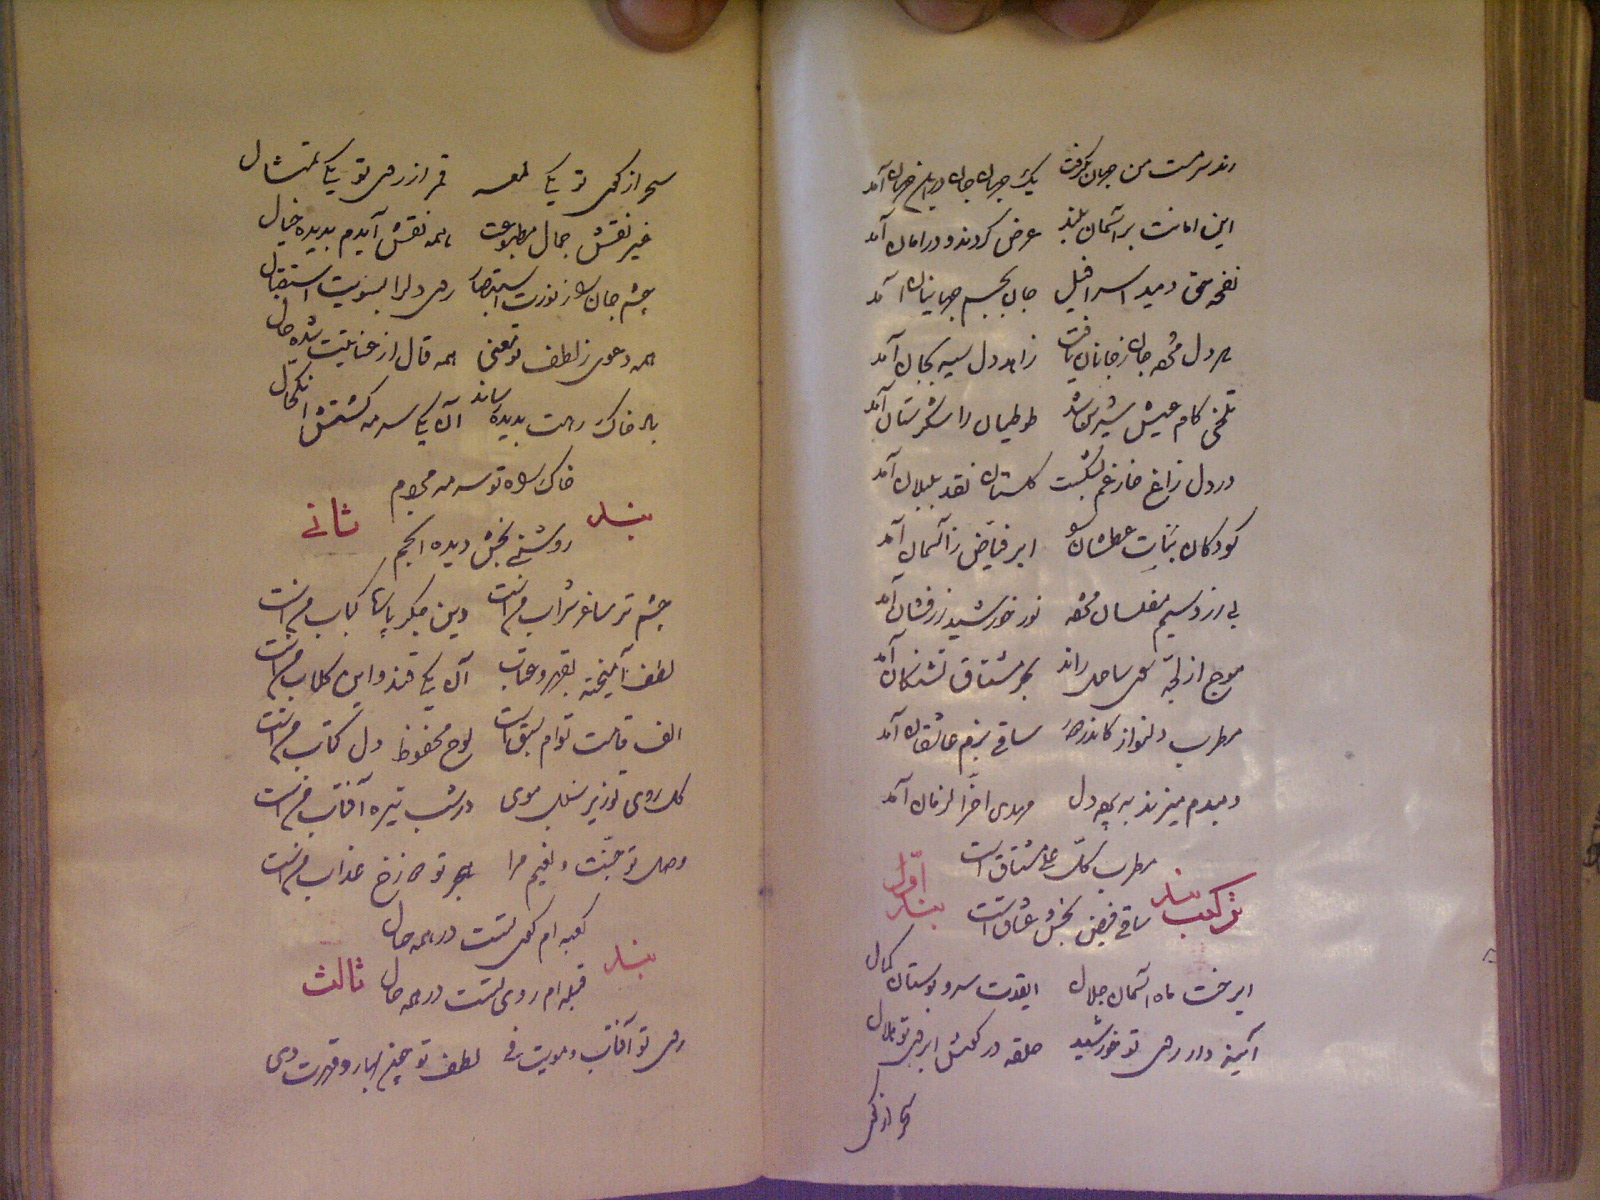 رند سرمست من جهان بگرفت یک جهان جان در این جهان آمد
این امانت بر آسمان بلند عرض کردند و در امان آمد
نفخهٔ حق دمید اسرافیل جان بجسم جهانیان آمد
دل جان ز جانان یافت زاهد دل سیه بجان آمد
تلخی کام عیش شیرین شد طوطیان را شکرستان آمد
در دل زاغ خار غم بشکست گلستان نقد بلبلان آمد
کودکان نبات عطشان ابر فیاض ز آسمان آمد
بی زر و سیم مفلسان نور خورشید زرفشان آمد
موج از لجه سوی ساحل راند بحر مشتاق تشنگان آمد
مطرب دلنواز ساقی بزم عاشقان آمد
دمبدم میزند به دل مهدی آخر الزمان آمد
مطرب کل علی مشتاق است
ترکیب بند بند اول
ساقی فیض بخش عشاق است
ای رخت ماه آسمان جلال ای قدت سرو بوستان کمال
آینه دار روی تو خورشید حلقه در گوش ابروی تو هلال
سحر از کوی
سحر از کوی تو یکی لمعه قمر از روی تو یکی تمثال
غیر نقش جمال مطبوعت همه نقش آیدم بدیده خیال
چشم جان را ز نورت استبصار روی دل را بسویت استقبال
همه دعوی ز لطف تو معنی همه قال از عنایتت شده حال
خاک رهت بدیده رساند آن یکی سرمه گشتش اکتحال
خاک راه تو سرمه
بند ثانی
روشنی بخش دیده انجم
چشم تر ساغر شراب من است دین جگر پارها کباب من است
لطف آمیخته بقهر و عتاب آن یکی قند و این گلاب من است
الف قامت توام سبق است لوح محفوظ دل کتاب من است
گل روی تو زیر سنبل موی در شب تیره آفتاب من است
وصل تو جنت و نعیم مرا هجر تو دوزخ عذاب من است
کعبه ام کوی تست در همه حال
بند ثالث
قبله ام روی تست در همه حال
روی تو آفتاب و مویت فی لطف تو چون بهار و قهرت دی